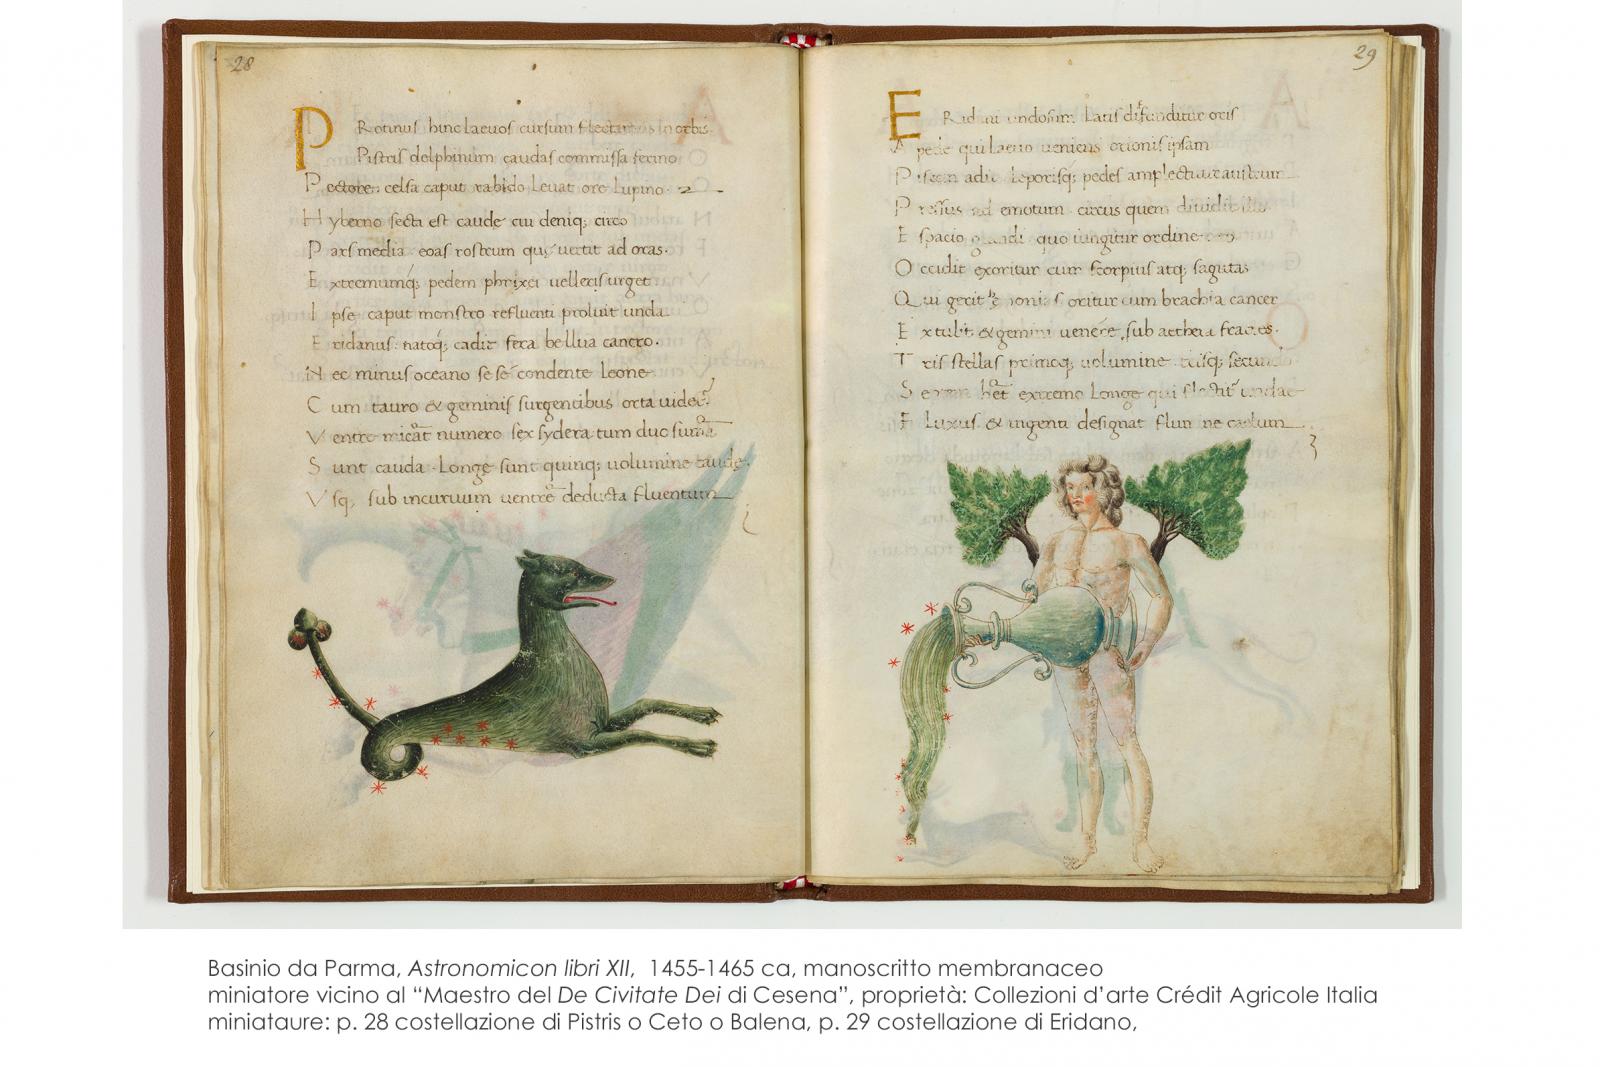 28
Protinus hinc laevos cursum flectantis in orbis.
Pistris delphinum caudas commissa ferino
Pectore. celsa caput rabido levat ore Lupino.
Hyberno secta est caude cui deniq; circo
Pars media. eoas rostrum qui vertit ad oras.
Extremumq; pedem phrixei velleris urget
Ipse caput monstro refluenti proluit unda
Eridanus. natoq; cadit fera bellua cancro.
Nec minus oceano sese condente Leone
Cum tauro & geminis surgentibus orta videt
Ventre micat numero sex sydera tum duo
Sunt cauda. Longe sunt quinq; volumine caude.
Vsq; sub incurvum ventre deducta fluentum
29
ERidani undosum. Latis difunditur oris
A pede qui laevo veniens orionis ipsam
Piscem adit Leporisq; pedes amplectitur
Pressus ad emotum. circus quem dividit
E spacio grandi quo iungitur ordine
Occidit exoritur cum scorpius atq; sagitas
Qui gerit oritur cum brachia cancer
Extulit. & gemini venere, sub aethera fratres.
Tris stellas primoq; volumine trisq; secundo
extremo Longe qui flectit undae
Fluxus. & ingenti designat flumine caelum
Basinio da Parma, Astronomicon libri XII, 1455-1465 ca, manoscritto membranaceo
miniatore vicino al “Maestro del De Civitate Dei di Cesena”, proprietà: Collezioni d’arte Crédit Agricole Italia
miniataure: p. 28 costellazione di Pistris o Ceto o Balena, p. 29 costellazione di Eridano,